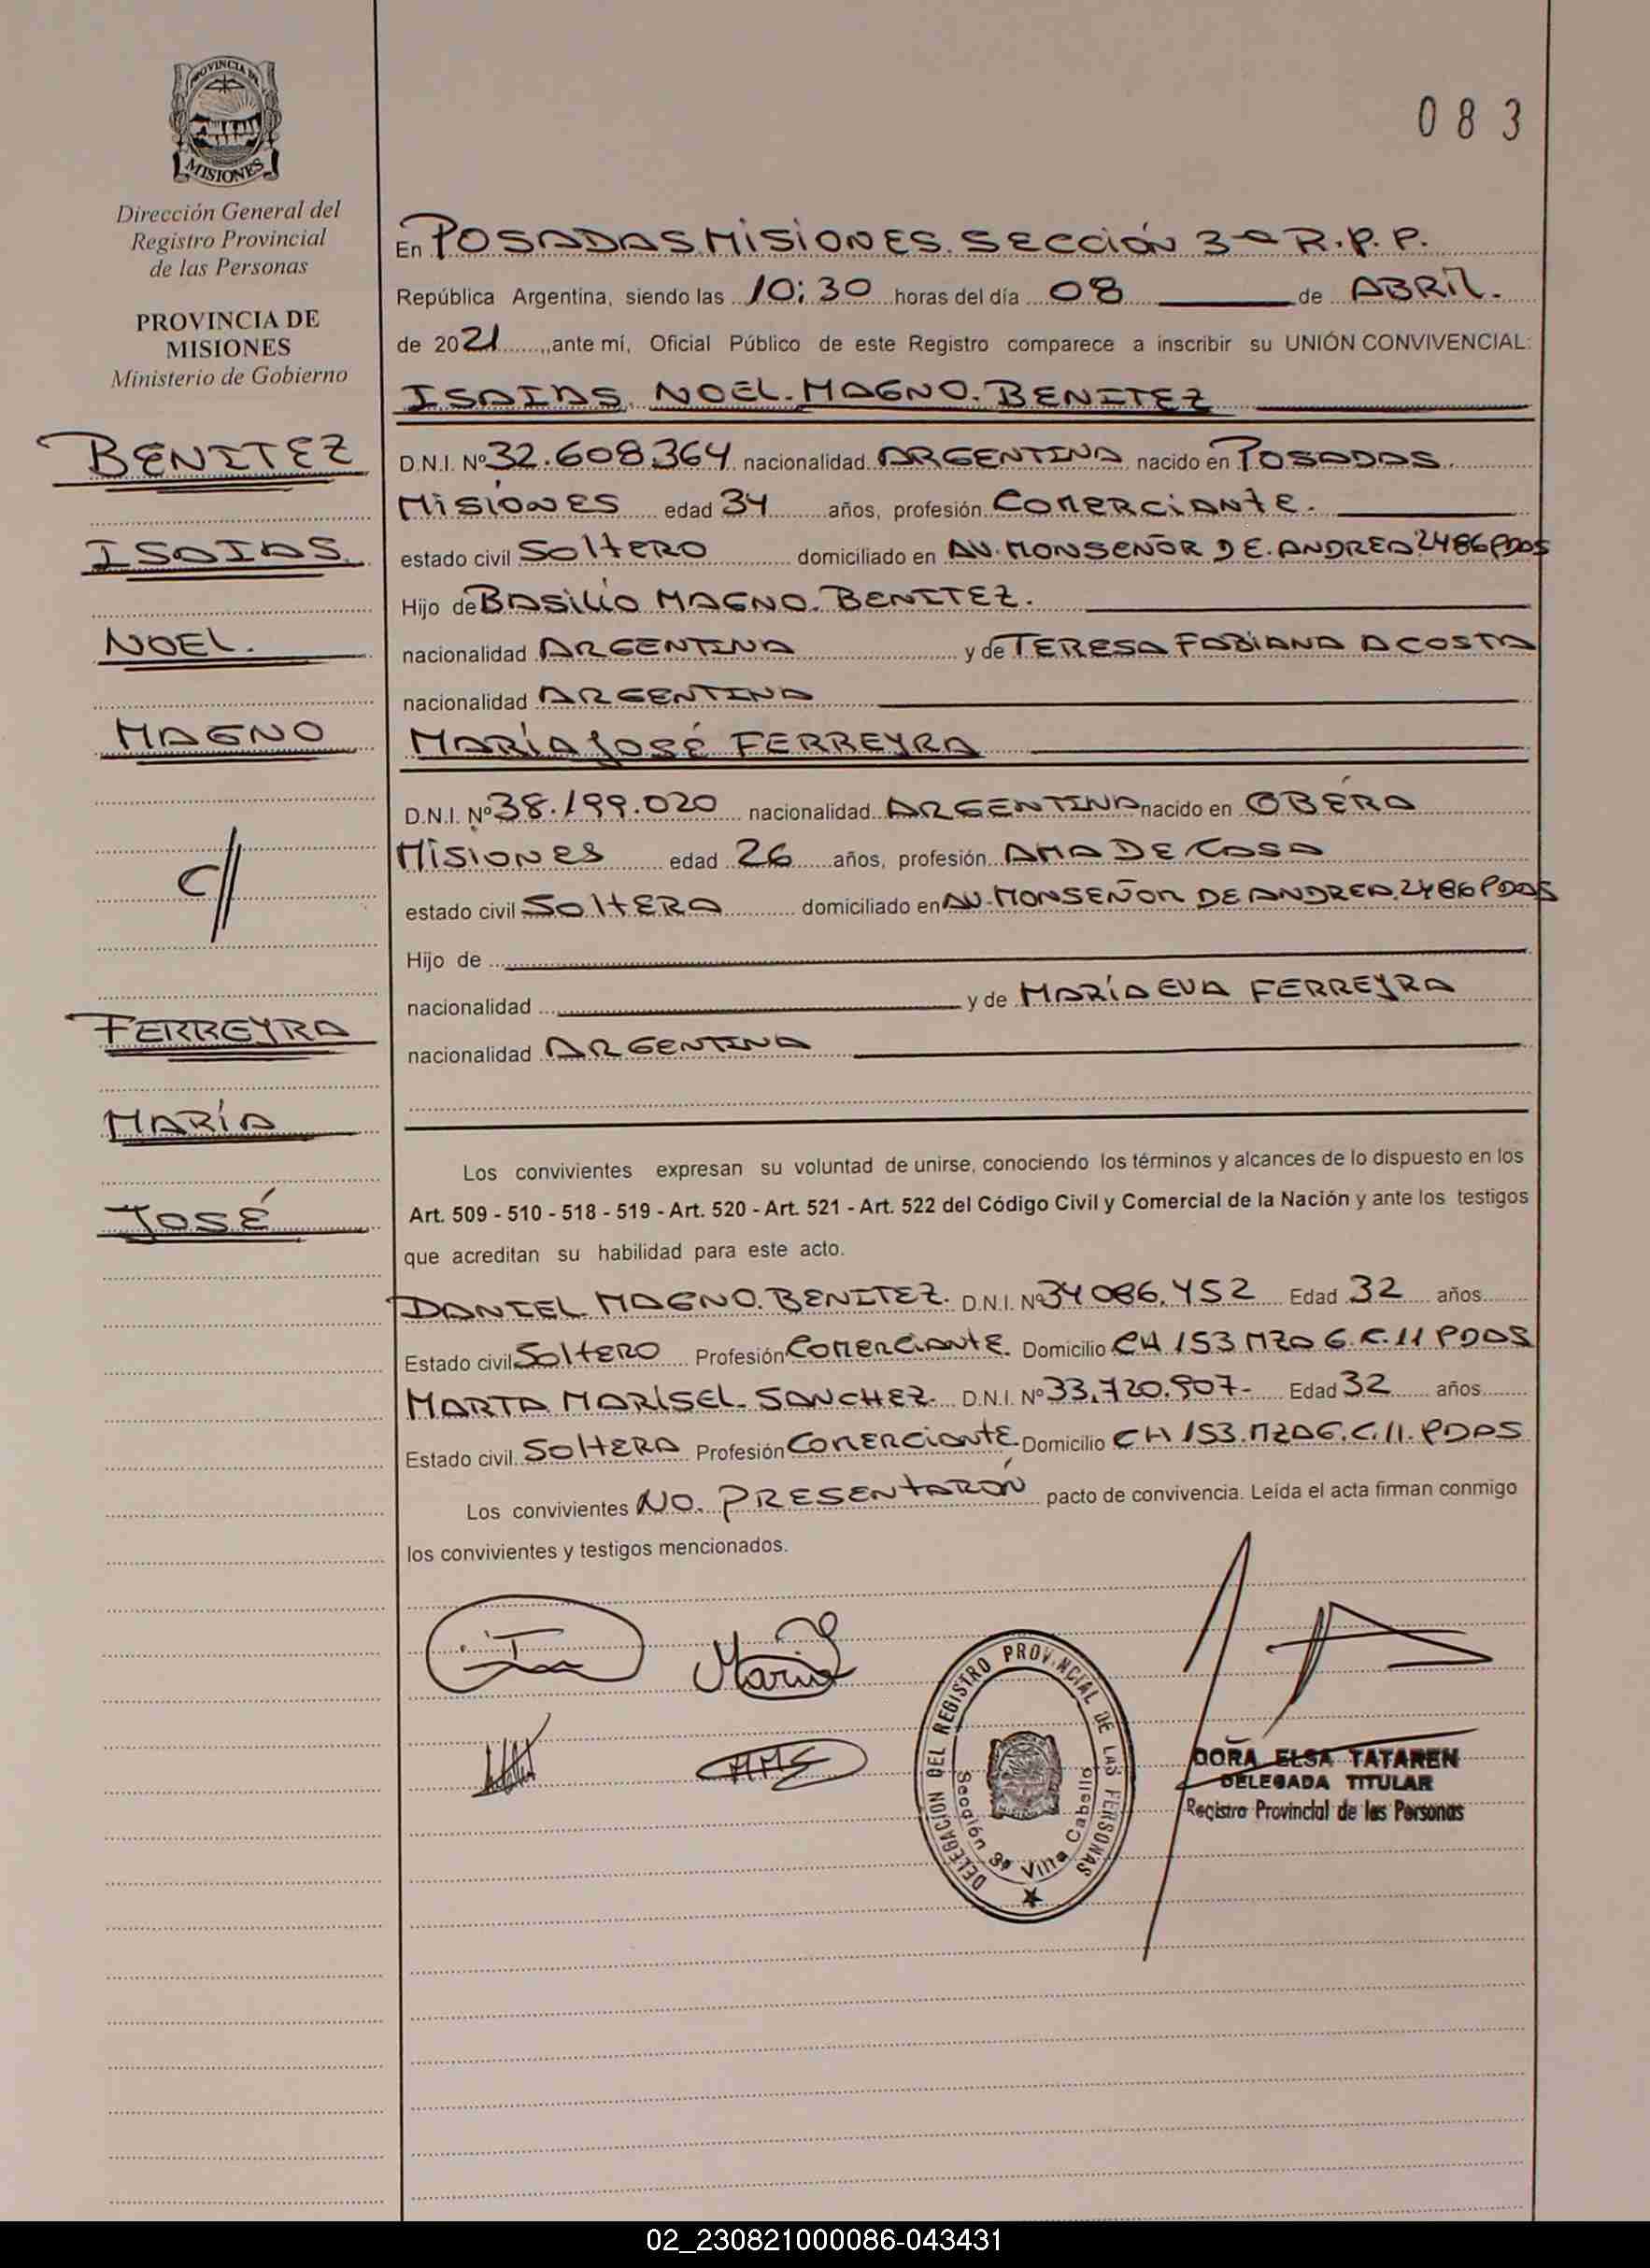 083
PROVINCIA DE
MISIONES
Dirección General del
Registro Provincial
de las Personas
PROVINCIA DE
MISIONES
Ministerio de Gobierno
BENITEZ
ISAIAS.
NOEL.
MAGNO
C//
FERREYRA
MARÍA
JOSÉ
En POSADAS MISIONES. SECCIÓN 3ª R.P.P.
República Argentina, siendo las 10:30 horas del día 08 de ABRIL.
de 2021, ante mí, Oficial Público de este Registro comparece a inscribir su UNIÓN CONVIVENCIAL:
ISAIAS. NOEL. MAGNO. BENITEZ
D.N.I. Nº 32.608.364 nacionalidad ARGENTINA nacido en POSADAS
MISIONES edad 34 años, profesión COMERCIANTE.
estado civil SOLTERO domiciliado en AV. MONSEÑOR DE. ANDREA 2486 PDAS
Hijo de BASILIO MAGNO. BENITEZ.
nacionalidad ARGENTINA y de TERESA FABIANA ACOSTA
nacionalidad ARGENTINA
MARÍA JOSÉ FERREYRA
D.N.I. Nº 38.199.020 nacionalidad ARGENTINA nacido en OBERÁ
MISIONES edad 26 años, profesión AMA DE CASA
estado civil SOLTERA domiciliado en AV. MONSEÑOR DE ANDREA. 2486 PDAS
Hijo de
nacionalidad y de MARÍA EVA FERREYRA
nacionalidad ARGENTINA
Los convivientes expresan su voluntad de unirse, conociendo los términos y alcances de lo dispuesto en los
Art. 509 - 510 - 518 - 519 - Art. 520 - Art. 521 - Art. 522 del Código Civil y Comercial de la Nación y ante los testigos
que acreditan su habilidad para este acto.
DANIEL MAGNO. BENITEZ. D.N.I. Nº 34086.452 Edad 32 años
Estado civil SOLTERO Profesión COMERCIANTE. Domicilio CH 153 MZA 6. C. 11 PDAS
MARTA MARISEL. SANCHEZ. D.N.I. Nº 33.720.907- Edad 32 años
Estado civil SOLTERA Profesión COMERCIANTE. Domicilio CH 153. MZA 6. C. 11. PDAS
Los convivientes NO. PRESENTARÓN pacto de convivencia. Leída el acta firman conmigo
los convivientes y testigos mencionados.
Maria
DELEGACION DEL REGISTRO PROVINCIAL DE LAS PERSONAS
Sección 3ª Villa Cabello
DORA ELSA TATAREN
DELEGADA TITULAR
Registro Provincial de las Personas
02_230821000086-043431